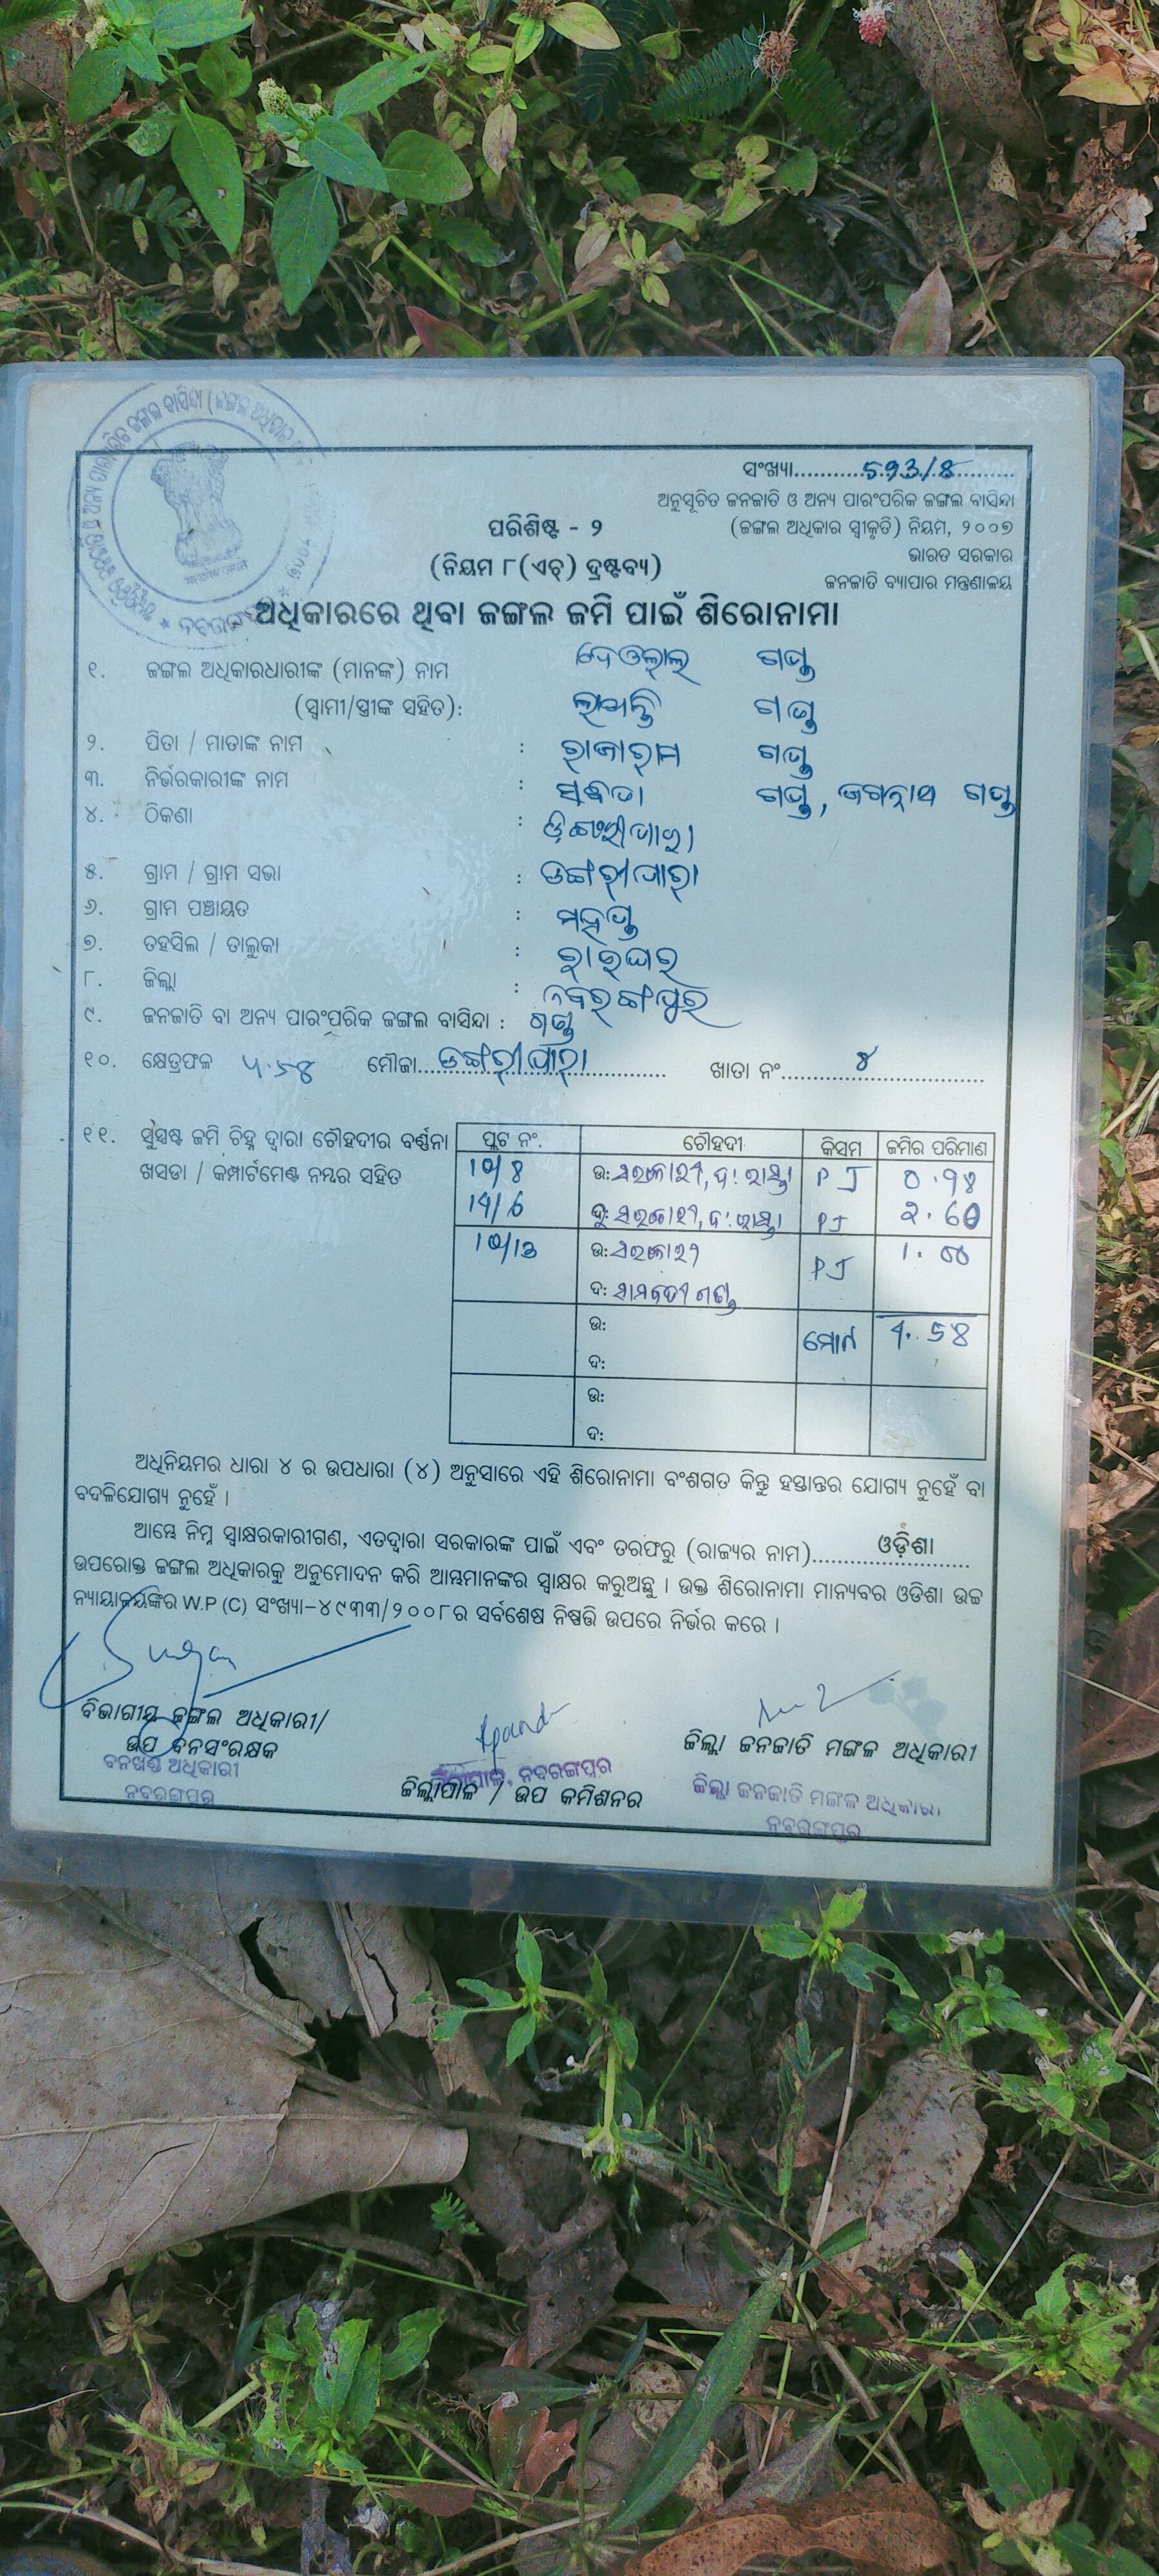 ସଂଖ୍ୟା..........593/8..........
ଅନୁସୂଚିତ ଜନଜାତି ଓ ଅନ୍ୟ ପାରଂପରିକ ଜଙ୍ଗଲ ବାସିନ୍ଦା
(ଜଙ୍ଗଲ ଅଧିକାର ସ୍ୱୀକୃତି) ନିୟମ, ୨୦୦୭
ଭାରତ ସରକାର
ଜନଜାତି ବ୍ୟାପାର ମନ୍ତ୍ରଣାଳୟ
ପରିଶିଷ୍ଟ - ୨
(ନିୟମ ୮(ଏଚ୍) ଦ୍ରଷ୍ଟବ୍ୟ)
ଅଧିକାରରେ ଥିବା ଜଙ୍ଗଲ ଜମି ପାଇଁ ଶିରୋନାମା
୧. ଜଙ୍ଗଲ ଅଧିକାରଧାରୀଙ୍କ (ମାନଙ୍କ) ନାମ ଦେଓଲାଲ ଗଣ୍ଡ
(ସ୍ୱାମୀ/ସ୍ତ୍ରୀଙ୍କ ସହିତ): ଗଣ୍ଡ
୨. ପିତା / ମାତାଙ୍କ ନାମ : ରାଜାରାମ ଗଣ୍ଡ
୩. ନିର୍ଭରକାରୀଙ୍କ ନାମ : ଗଣ୍ଡ, ଜଗନ୍ନାଥ ଗଣ୍ଡ
୪. ଠିକଣା :
୫. ଗ୍ରାମ / ଗ୍ରାମ ସଭା : ଡଙ୍ଗରୀପାରା
୬. ଗ୍ରାମ ପଞ୍ଚାୟତ :
୭. ତହସିଲ / ତାଲୁକା : ରାଇଘର
୮. ଜିଲ୍ଲା : ନବରଙ୍ଗପୁର
୯. ଜନଜାତି ବା ଅନ୍ୟ ପାରଂପରିକ ଜଙ୍ଗଲ ବାସିନ୍ଦା : ଗଣ୍ଡ
୧୦. କ୍ଷେତ୍ରଫଳ ମୌଜା....ଡଙ୍ଗରୀପାରା.... ଖାତା ନଂ....8....
୧୧. ସୁସ୍ପଷ୍ଟ ଜମି ଚିହ୍ନ ଦ୍ୱାରା ଚୌହଦୀର ବର୍ଣ୍ଣନା
ଖସଡା / କମ୍ପାର୍ଟମେଣ୍ଟ ନମ୍ବର ସହିତ
ପ୍ଲଟ ନଂ. ଚୌହଦୀ କିସମ ଜମିର ପରିମାଣ
ଉ: ସରକାରୀ, ଦ: ରାସ୍ତା PJ
ସରକାରୀ, ଦ: ରାସ୍ତା PJ
ଉ: ସରକାରୀ PJ 1.00
ଦ: ଗଣ୍ଡ
ଉ: ମୋଟ
ଦ:
ଉ:
ଦ:
ଅଧିନିୟମର ଧାରା ୪ ର ଉପଧାରା (୪) ଅନୁସାରେ ଏହି ଶିରୋନାମା ବଂଶଗତ କିନ୍ତୁ ହସ୍ତାନ୍ତର ଯୋଗ୍ୟ ନୁହେଁ ବା
ବଦଳିଯୋଗ୍ୟ ନୁହେଁ ।
ଆମ୍ଭେ ନିମ୍ନ ସ୍ୱାକ୍ଷରକାରୀଗଣ, ଏତଦ୍ୱାରା ସରକାରଙ୍କ ପାଇଁ ଏବଂ ତରଫରୁ (ରାଜ୍ୟର ନାମ)......ଓଡ଼ିଶା......
ଉପରୋକ୍ତ ଜଙ୍ଗଲ ଅଧିକାରକୁ ଅନୁମୋଦନ କରି ଆମ୍ଭମାନଙ୍କର ସ୍ୱାକ୍ଷର କରୁଅଛୁ । ଉକ୍ତ ଶିରୋନାମା ମାନ୍ୟବର ଓଡିଶା ଉଚ୍ଚ
ନ୍ୟାୟାଳୟଙ୍କର W.P (C) ସଂଖ୍ୟା-୪୯୩୩/୨୦୦୮ର ସର୍ବଶେଷ ନିଷ୍ପତ୍ତି ଉପରେ ନିର୍ଭର କରେ ।
ବିଭାଗୀୟ ଜଙ୍ଗଲ ଅଧିକାରୀ/
ଉପ ବନସଂରକ୍ଷକ
ବନଖଣ୍ଡ ଅଧିକାରୀ
ନବରଙ୍ଗପୁର
ଜିଲ୍ଲାପାଳ, ନବରଙ୍ଗପୁର
ଜିଲ୍ଲାପାଳ / ଉପ କମିଶନର
ଜିଲ୍ଲା ଜନଜାତି ମଙ୍ଗଳ ଅଧିକାରୀ
ଜିଲ୍ଲା ଜନଜାତି ମଙ୍ଗଳ ଅଧିକାରୀ
ନବରଙ୍ଗପୁର